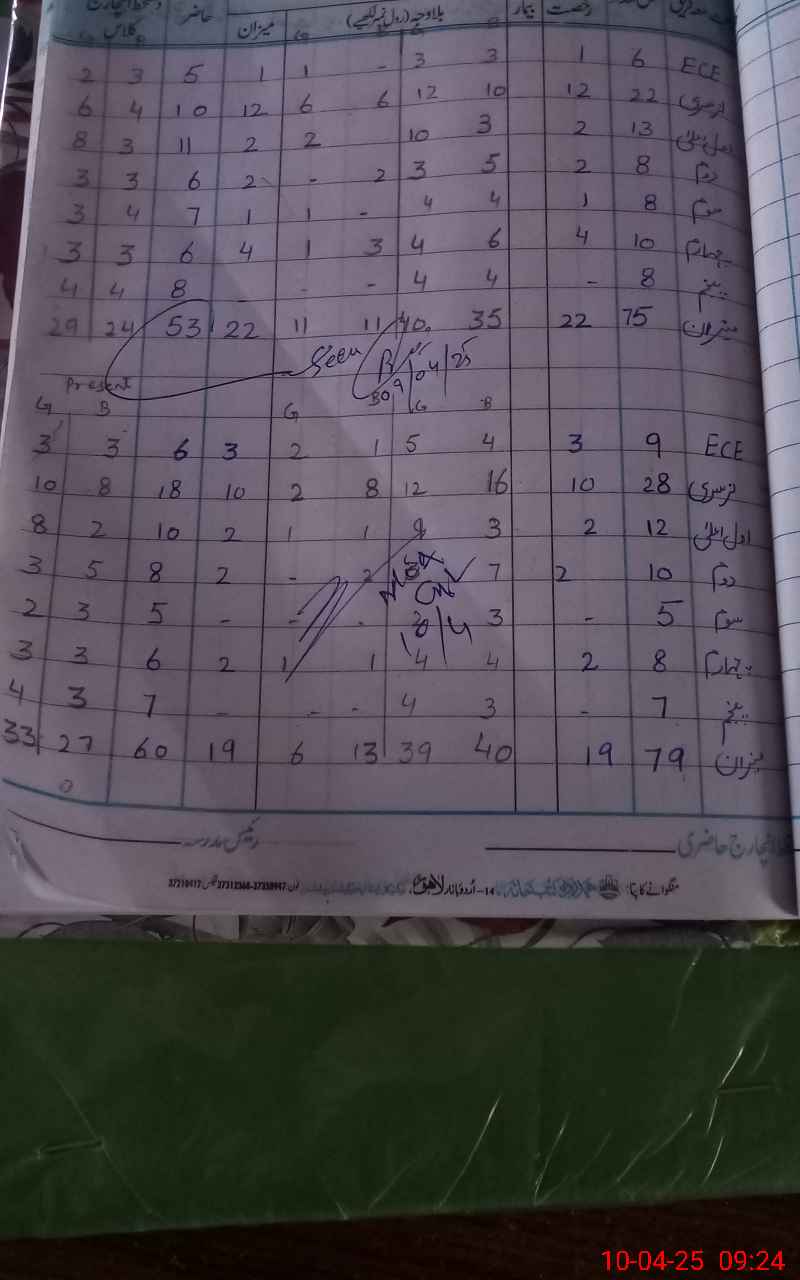 بیمار رخصت بلاوجہ (رول نمبر لکھیے) میزان حاضر کلاس
ECE 6 1 3 3 - 1 1 5 3 2
نرسری 22 12 10 12 6 6 12 10 4 6
اول اعلیٰ 13 2 3 10 2 2 11 3 8
دوم 8 2 5 3 2 - 2 6 3 3
سوم 8 1 4 4 - 1 1 7 4 3
چہارم 10 4 6 4 3 1 4 6 3 3
پنجم 8 - 4 4 - - - 8 4 4
میزان 75 22 35 40 11 11 22 53 24 29
Seen
09/04/25
Present
B G G B G
ECE 9 3 4 5 1 2 3 6 3 3
نرسری 28 10 16 12 8 2 10 18 8 10
اول اعلیٰ 12 2 3 9 1 1 2 10 2 8
دوم 10 2 7 3 2 - 2 8 5 3
سوم 5 - 3 2 - - - 5 3 2
10/4
چہارم 8 2 4 4 1 1 2 6 3 3
پنجم 7 - 3 4 - - - 7 3 4
میزان 79 19 40 39 13 6 19 60 27 33
انچارج حاضری رئیس مدرسہ
منگوانے کا پتا: 14-اُردو بازار لاہور
10-04-25 09:24